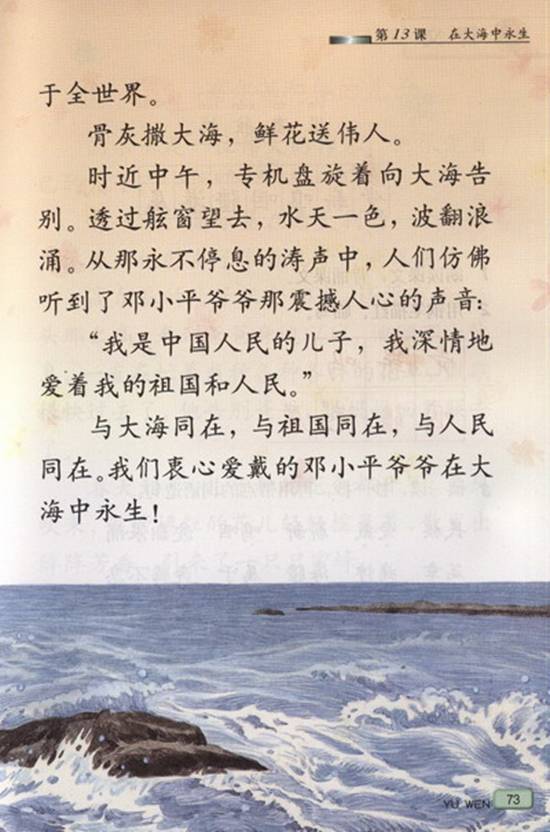 第13课 在大海中永生
于全世界。
骨灰撒大海，鲜花送伟人。
时近中午，专机盘旋着向大海告
别。透过舷窗望去，水天一色，波翻浪
涌。从那永不停息的涛声中，人们仿佛
听到了邓小平爷爷那震撼人心的声音：
“我是中国人民的儿子，我深情地
爱着我的祖国和人民。”
与大海同在，与祖国同在，与人民
同在。我们衷心爱戴的邓小平爷爷在大
海中永生！
YU WEN 73